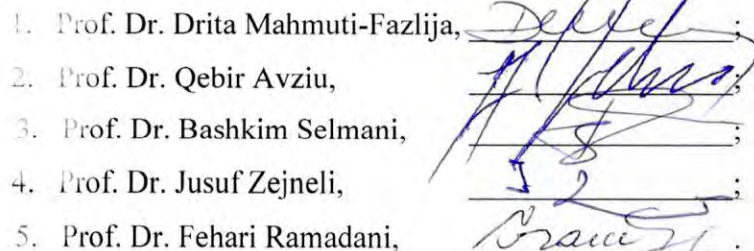 1. Prof. Dr. Drita Mahmuti-Fazlija, ;
2. Prof. Dr. Qebir Avziu, ;
3. Prof. Dr. Bashkim Selmani, ;
4. Prof. Dr. Jusuf Zejneli, ;
5. Prof. Dr. Fehari Ramadani, .